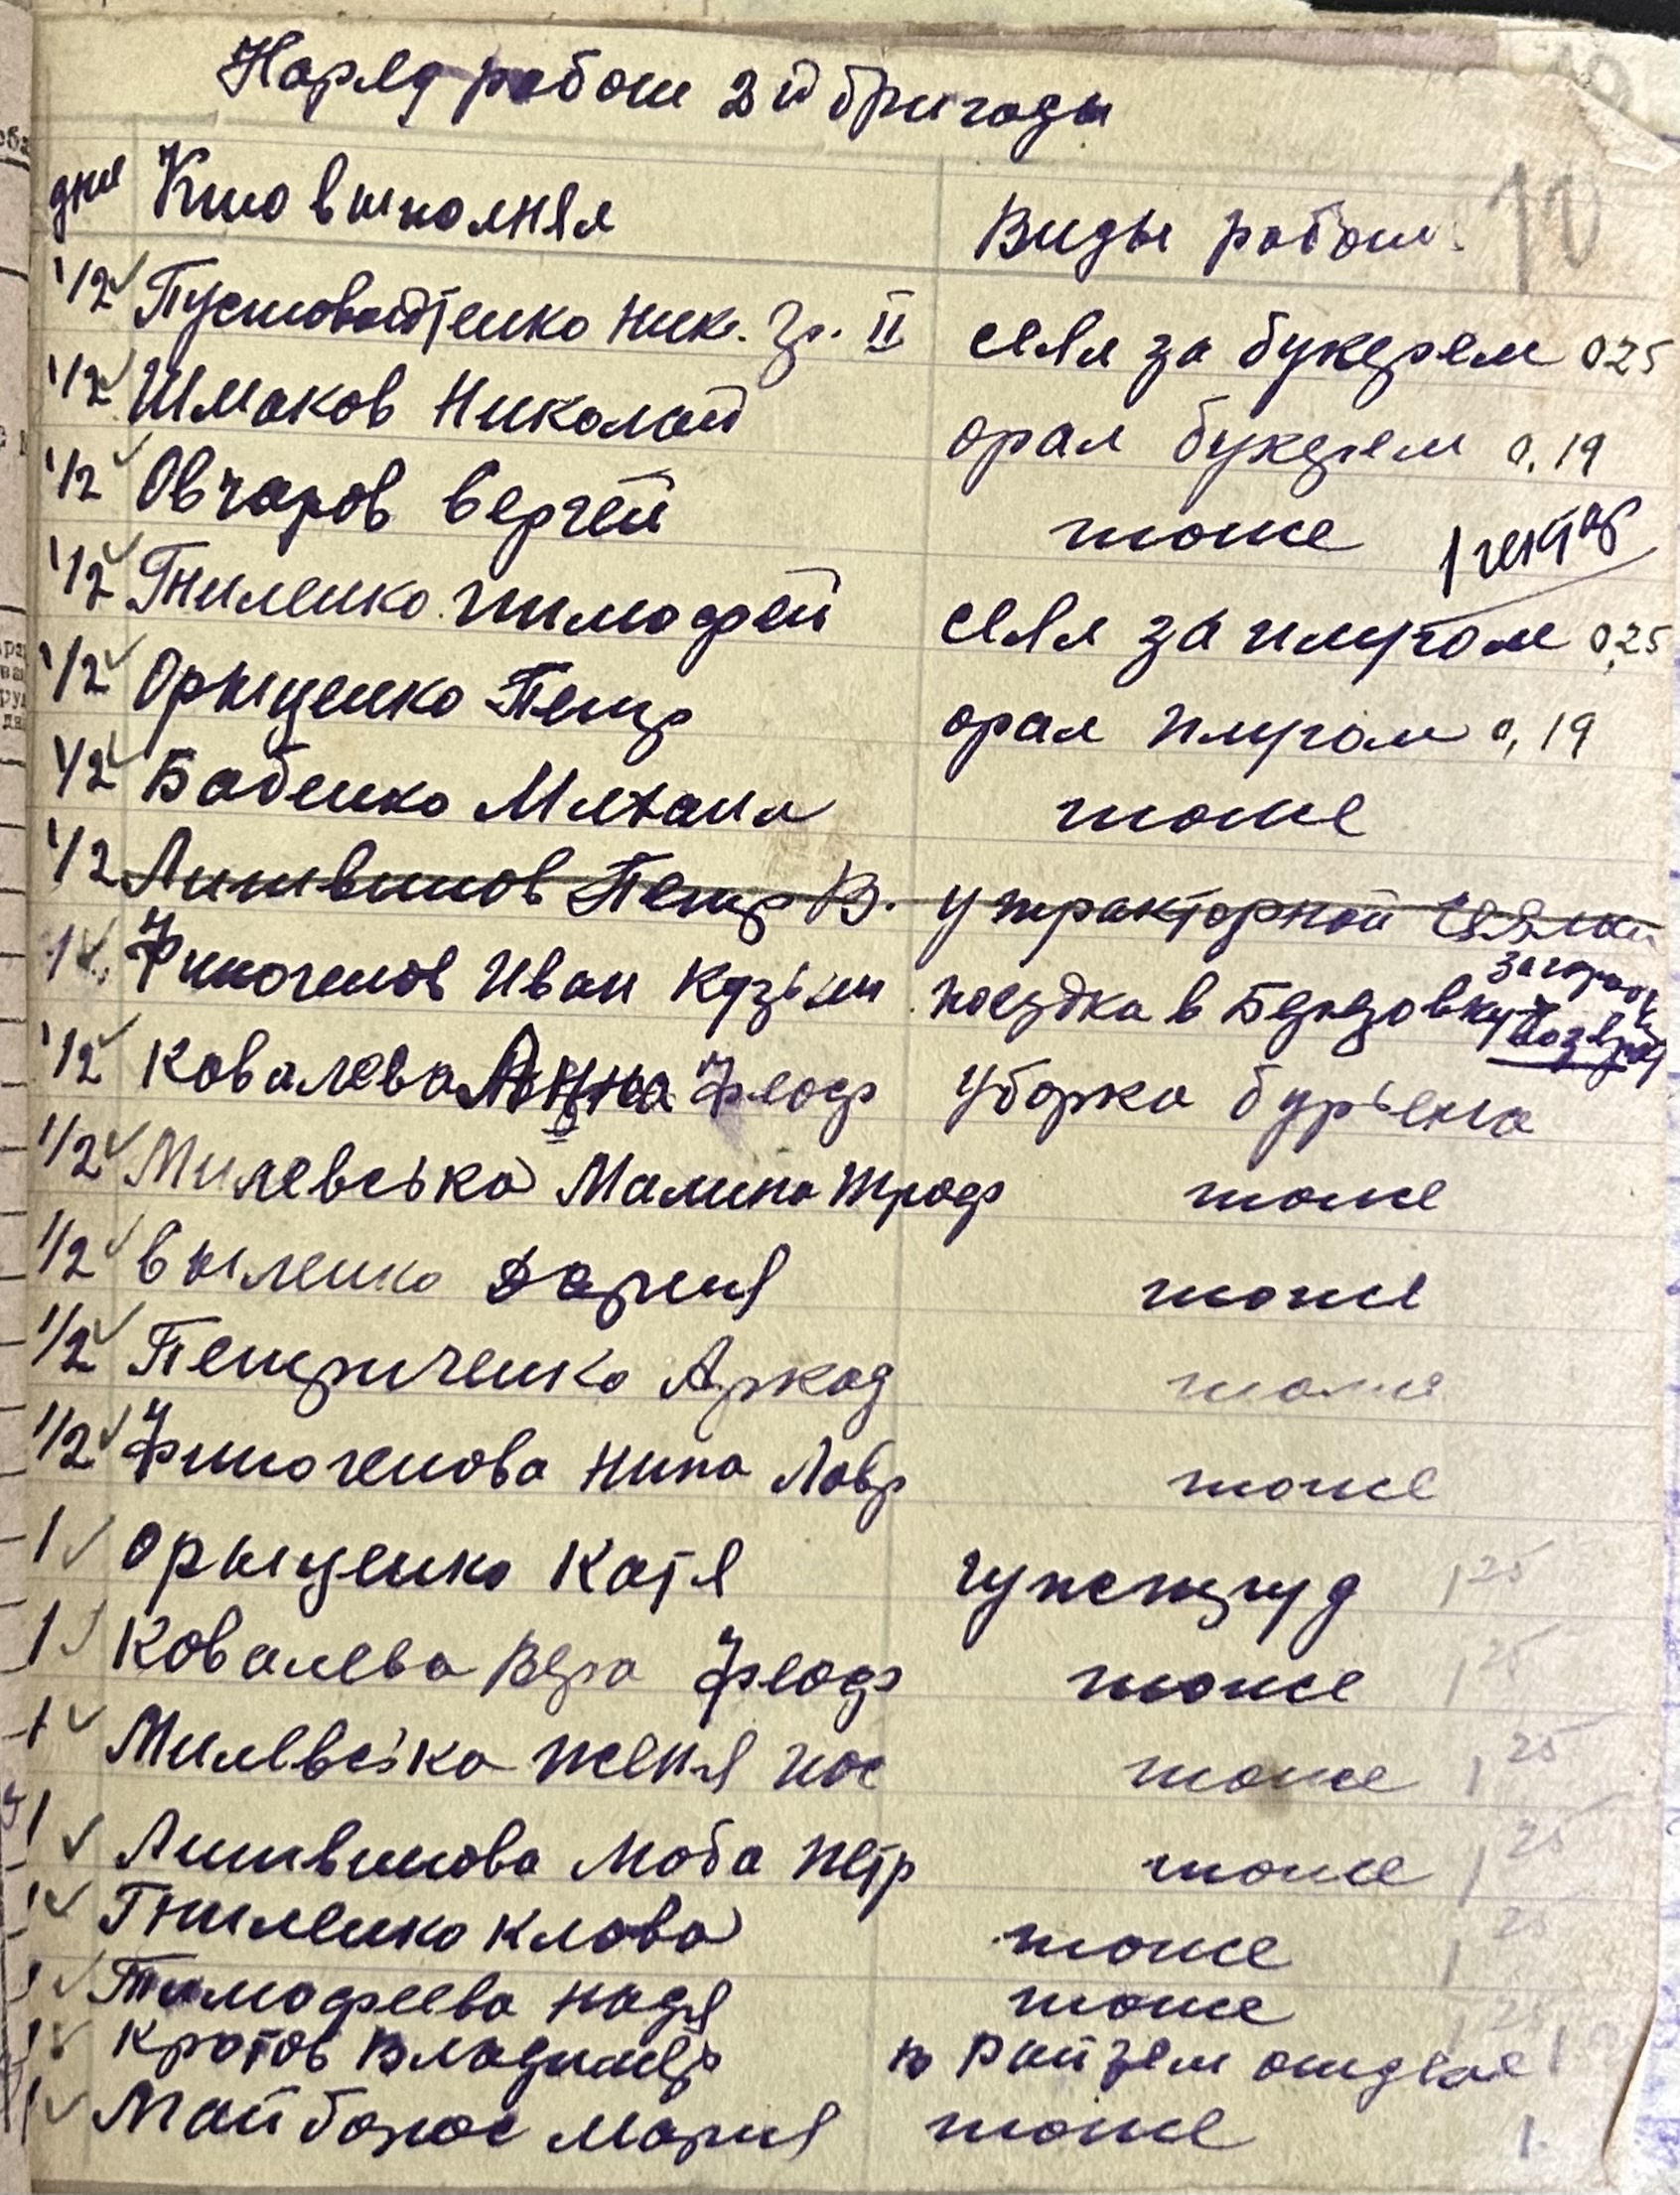 Наряд работ 2й бригады
10
дни Кто выполнял Виды работ.
1/2 Пустовойтенко Ник. Гр. II сеял за букером 0 25
1/2 Шмаков Николай орал букером 0,19
1/2 Овчаров Сергей тоже 1 гектар
1/2 Гниленко Тимофей сеял за плугом 0,25
1/2 Орыщенко Петр орал плугом 0,19
1/2 Бабенко Михаил тоже
1/2 Литвинов Петр В. у тракторной сеялки
1 Финогенов Иван Кузьм поездка в Березовку
1/2 Ковалева Анна Феод уборка бурьена
1/2 Милевська Малина Троф тоже
1/2 Выленко Дария тоже
1/2 Петриченко Аркад тоже
1/2 Финогенова Нина Лавр тоже
1 Орыщенко Катя гужтруд 1 25
1 Ковалева Вера Феод тоже 1 25
1 Милевська Женя Иос тоже 1 25
1 Литвинова Люба Петр тоже 1 25
1 Гниленко Клава тоже 1 25
1 Тимофеева Надя тоже 1 25
1 Кротов Владимир в Райзем отделе 1
1 Майборос Мария тоже 1.